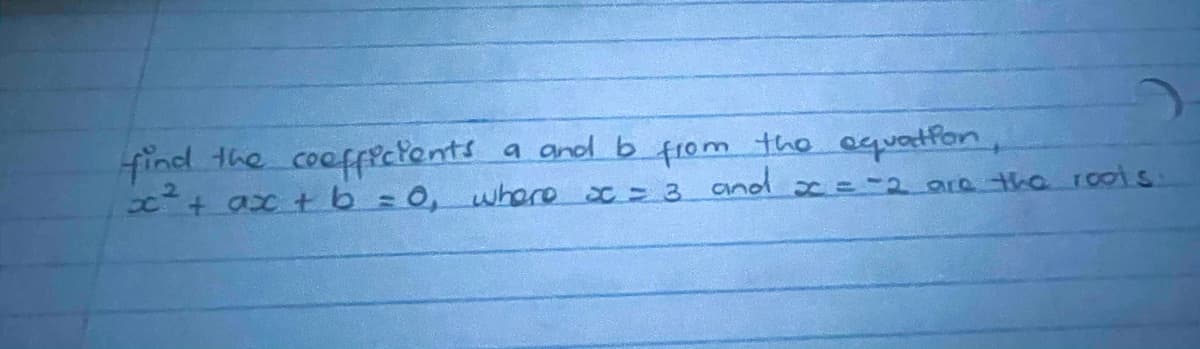 find the coefficients a and b from the equation,
x² + ax + b = 0, where x = 3 and x = -2 are the roots.